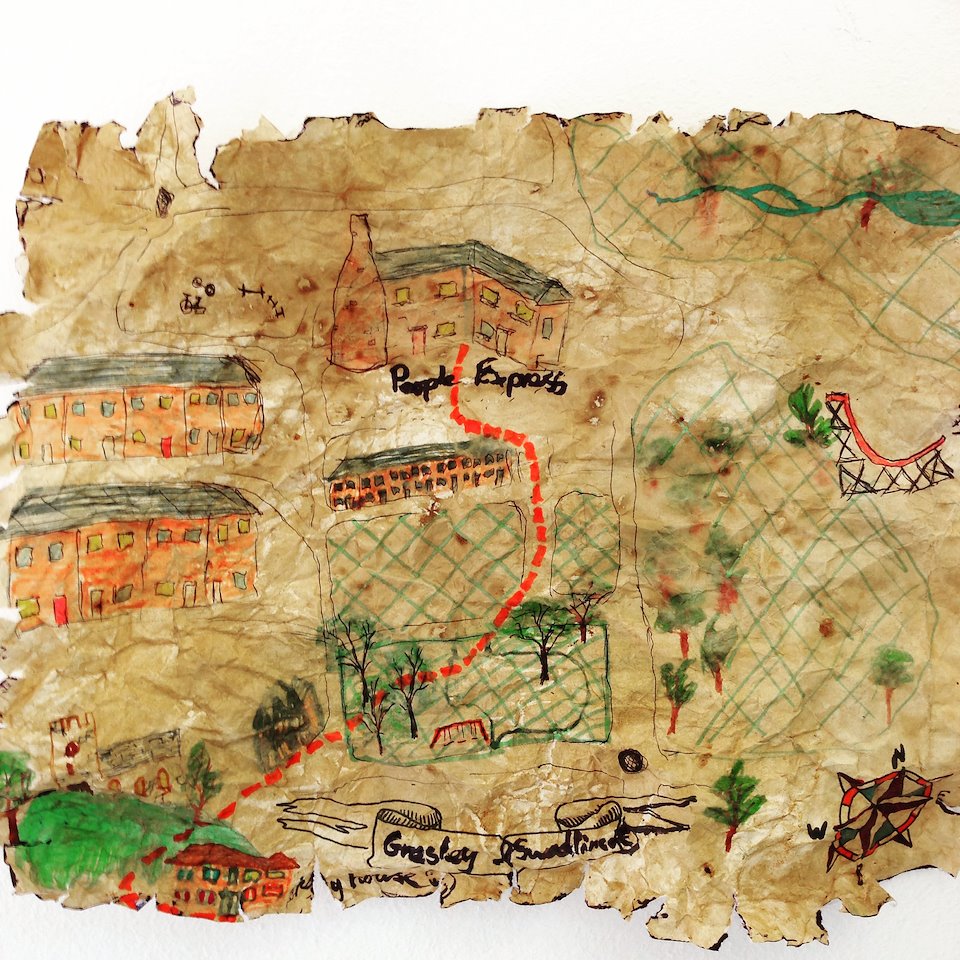 People Express
N
W
Gresley
house